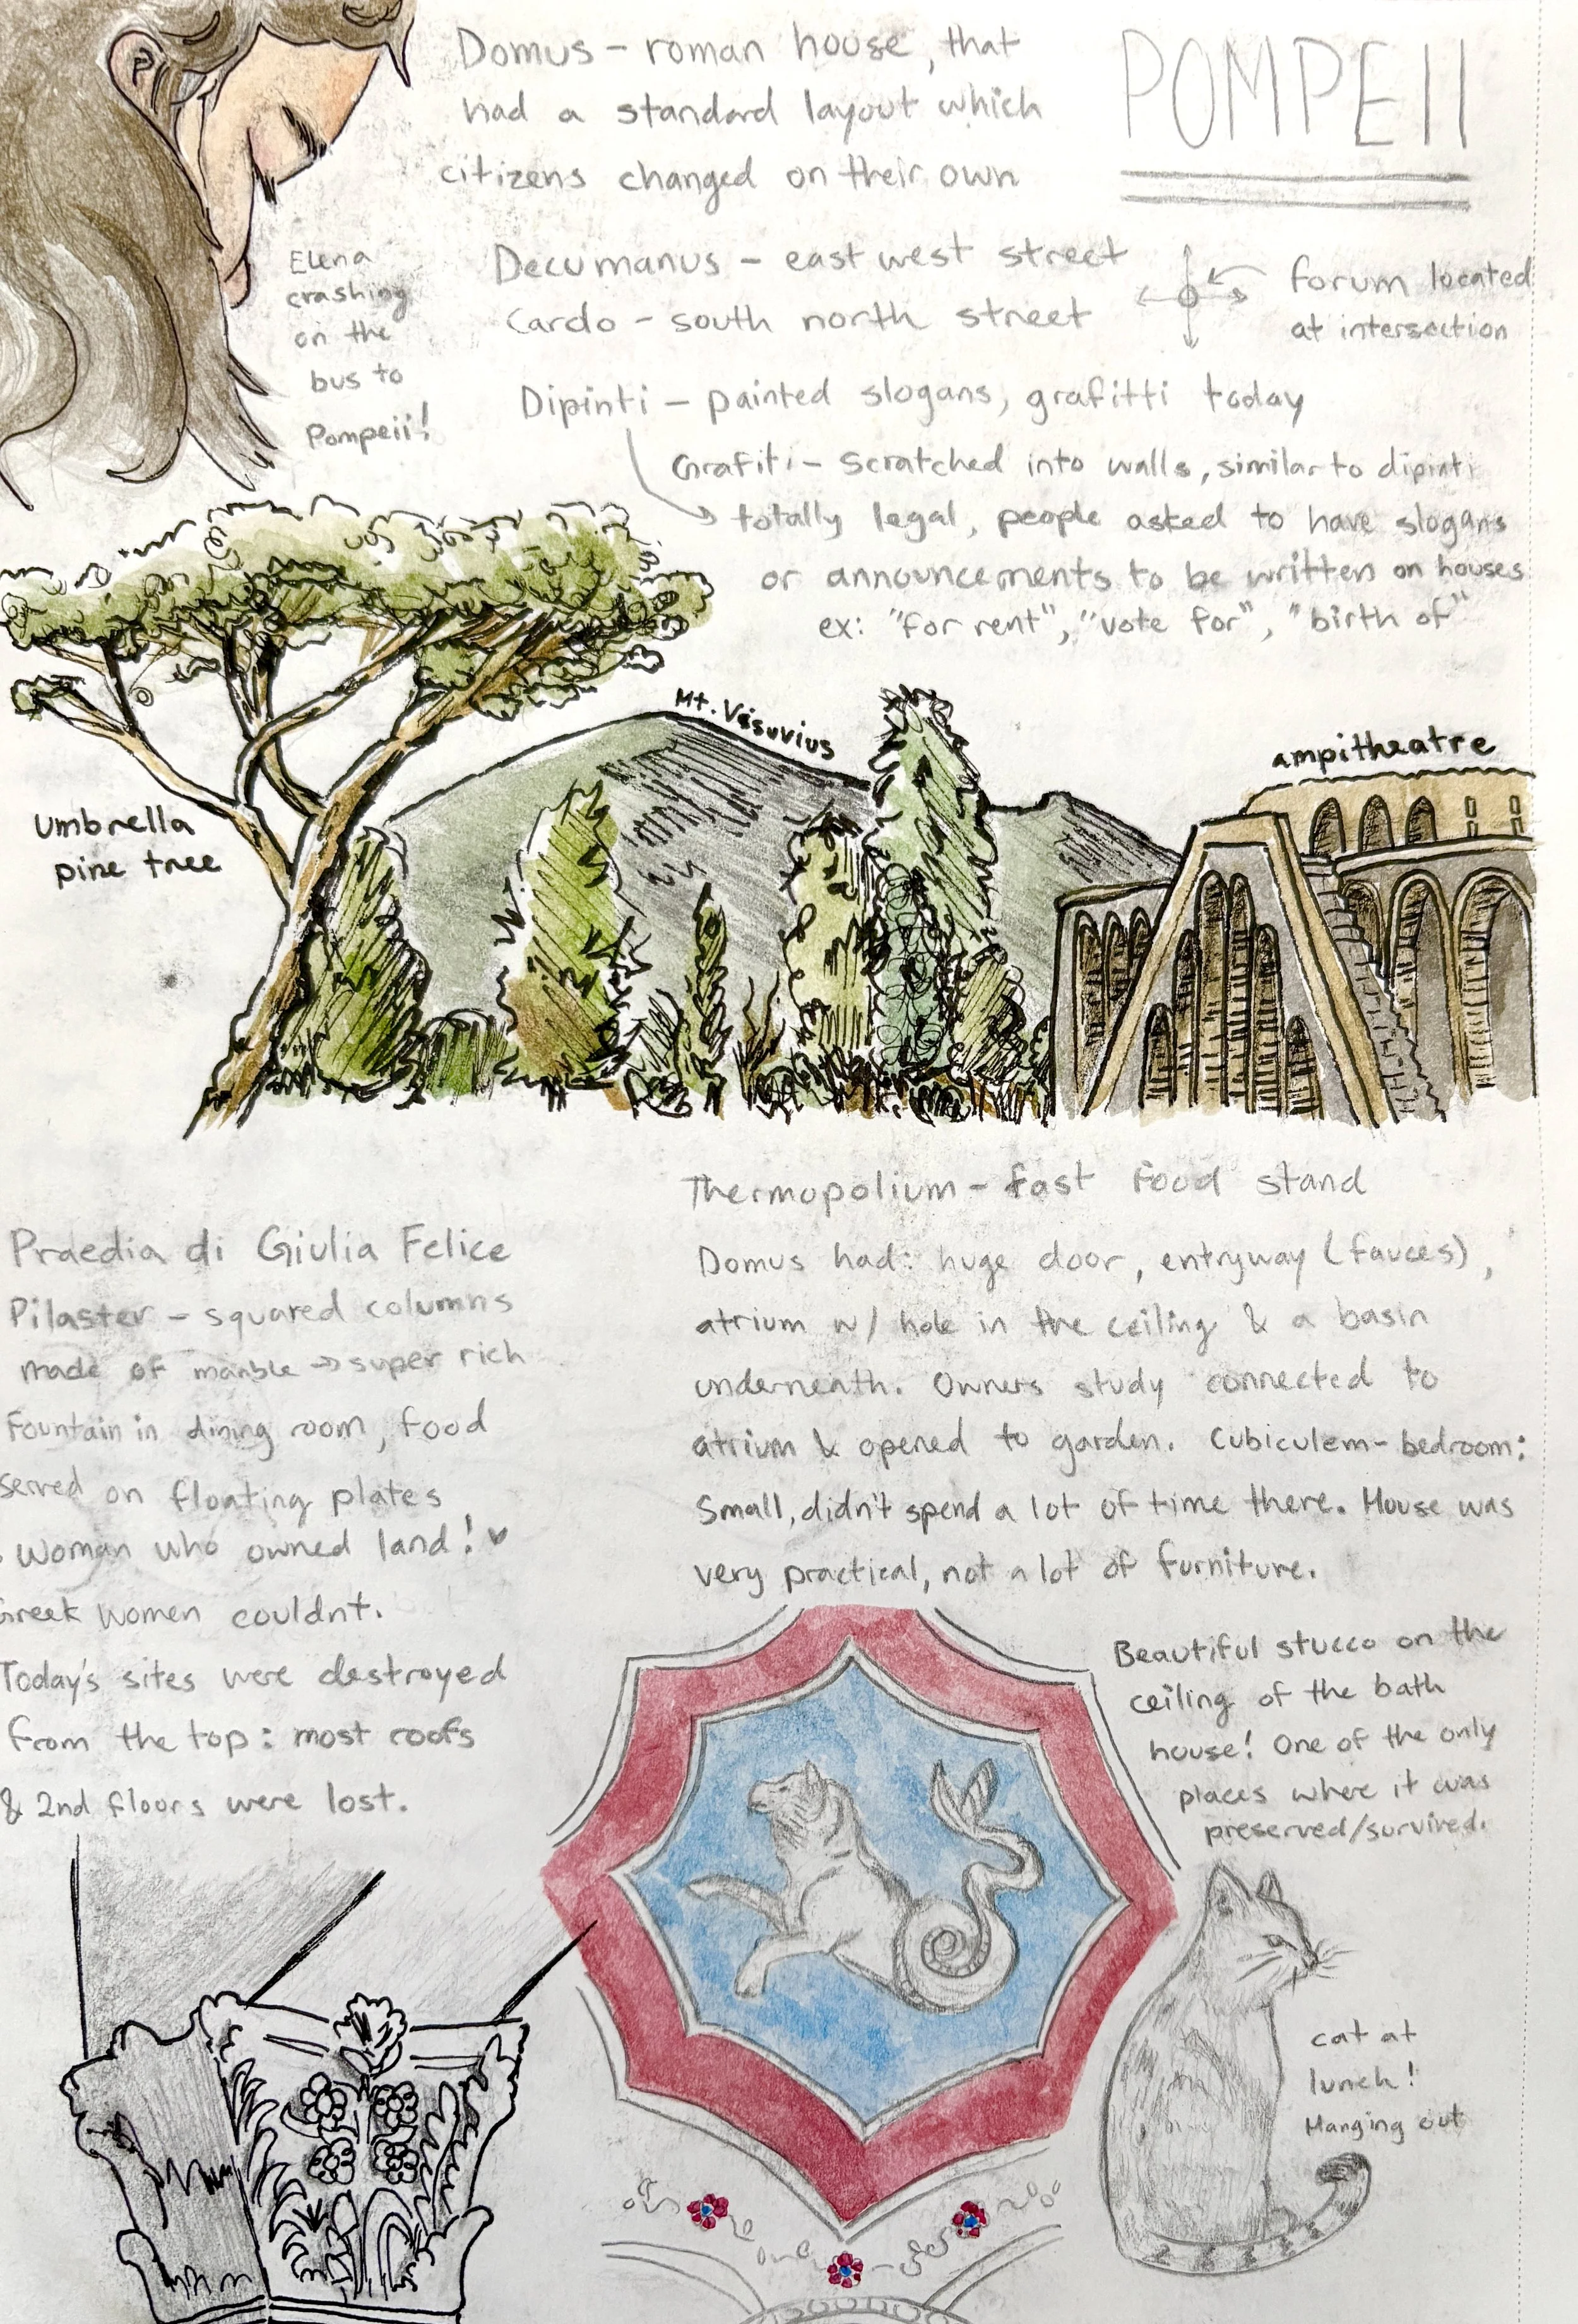 Domus - roman house, that
had a standard layout which
citizens changed on their own
POMPEII
Elena
crashing
on the
bus to
Pompeii!
Decumanus - east west street
Cardo - south north street
forum located
at intersection
Dipinti - painted slogans, grafitti today
Grafiti - scratched into walls, similar to dipinti
totally legal, people asked to have slogans
or announcements to be written on houses
ex: "for rent", "vote for", "birth of"
Mt. Vesuvius
ampitheatre
Umbrella
pine tree
Thermopolium - fast food stand
Domus had: huge door, entryway (fauces),
atrium w/ hole in the ceiling & a basin
underneath. Owners study connected to
atrium & opened to garden. Cubiculem - bedroom:
Small, didn't spend a lot of time there. House was
very practical, not a lot of furniture.
Praedia di Giulia Felice
Pilaster - squared columns
made of marble → super rich
Fountain in dining room, food
served on floating plates
Woman who owned land! ♥
Greek women couldnt.
Today's sites were destroyed
from the top: most roofs
& 2nd floors were lost.
Beautiful stucco on the
ceiling of the bath
house! One of the only
places where it was
preserved/survived.
cat at
lunch!
Hanging out